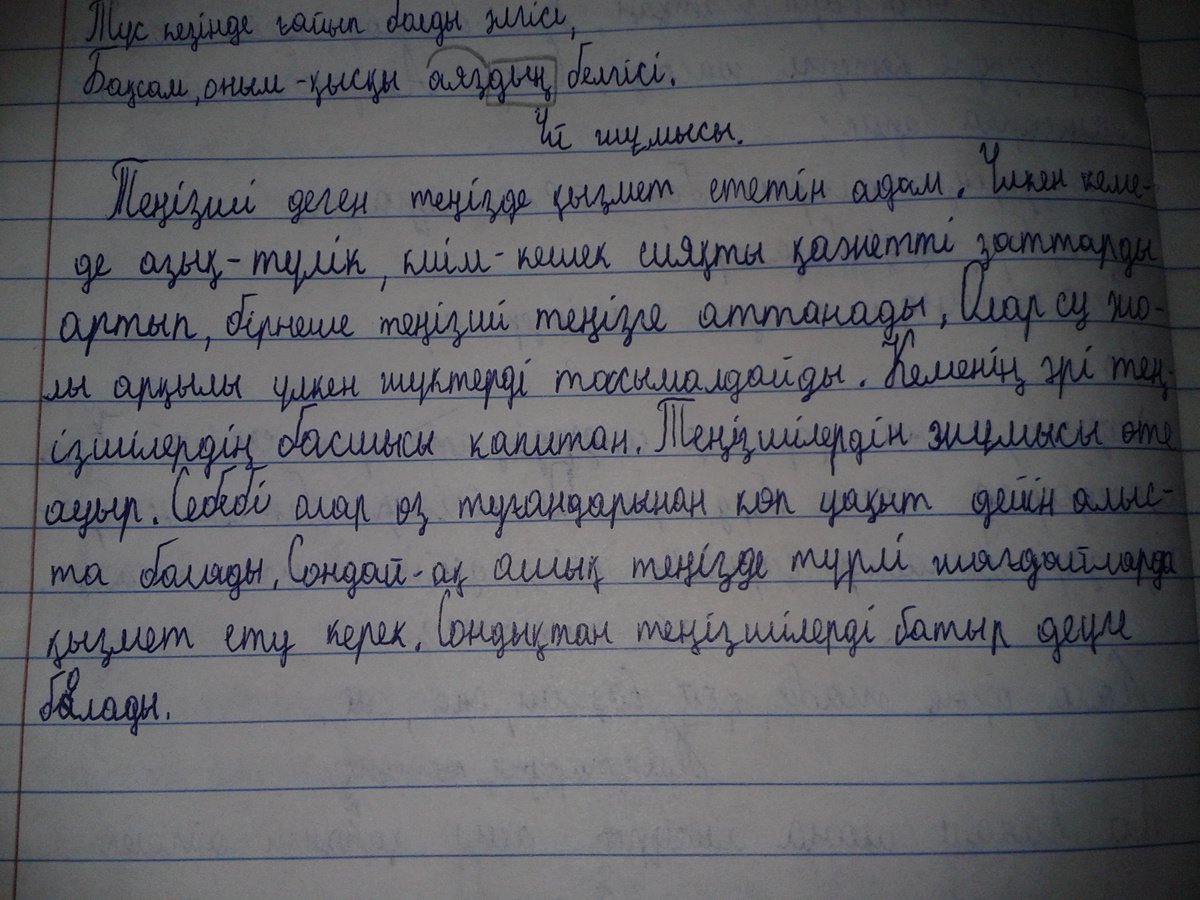 Түс кезінде ғайып болды әлгісі,
Бақсам, оным - қысқы аяздың белгісі.
Үй жұмысы.
Теңізші деген теңізде қызмет ететін адам. Үлкен кеме-
де азық-түлік, киім-кешек сияқты қажетті заттарды
артып, бірнеше теңізші теңізге аттанады. Олар су жо-
лы арқылы үлкен жүктерді тасымалдайды. Кеменің әрі тең-
ізшілердің басшысы капитан. Теңізшілердің жұмысы өте
ауыр. Себебі олар өз туғандарынан көп уақыт дейін алыс-
та болады. Сондай-ақ ашық теңізде түрлі жағдайларда
қызмет ету керек. Сондықтан теңізшілерді батыр деуге
болады.